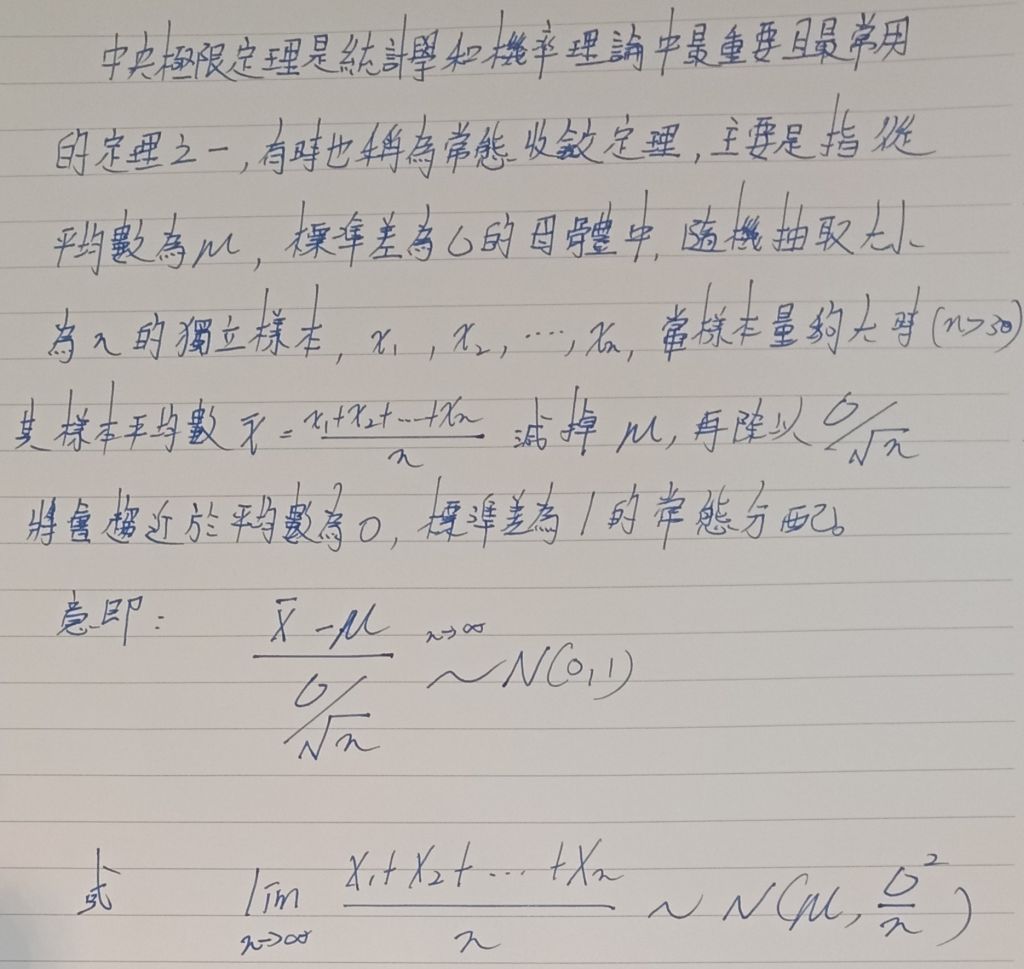 中央極限定理是統計學和機率理論中最重要且最常用
的定理之一,有時也稱為常態收斂定理,主要是指從
平均數為μ,標準差為σ的母體中,隨機抽取大小
為n的獨立樣本,x₁,x₂,…,xₙ,當樣本量夠大時(n>30)
其樣本平均數 x̄ = (x₁+x₂+…+xₙ)/n 減掉μ,再除以 σ/√n
將會趨近於平均數為0,標準差為1的常態分配。
意即: (x̄-μ)/(σ/√n) ~ N(0,1) n→∞
或 lim n→∞ (x₁+x₂+…+xₙ)/n ~ N(μ, σ²/n)